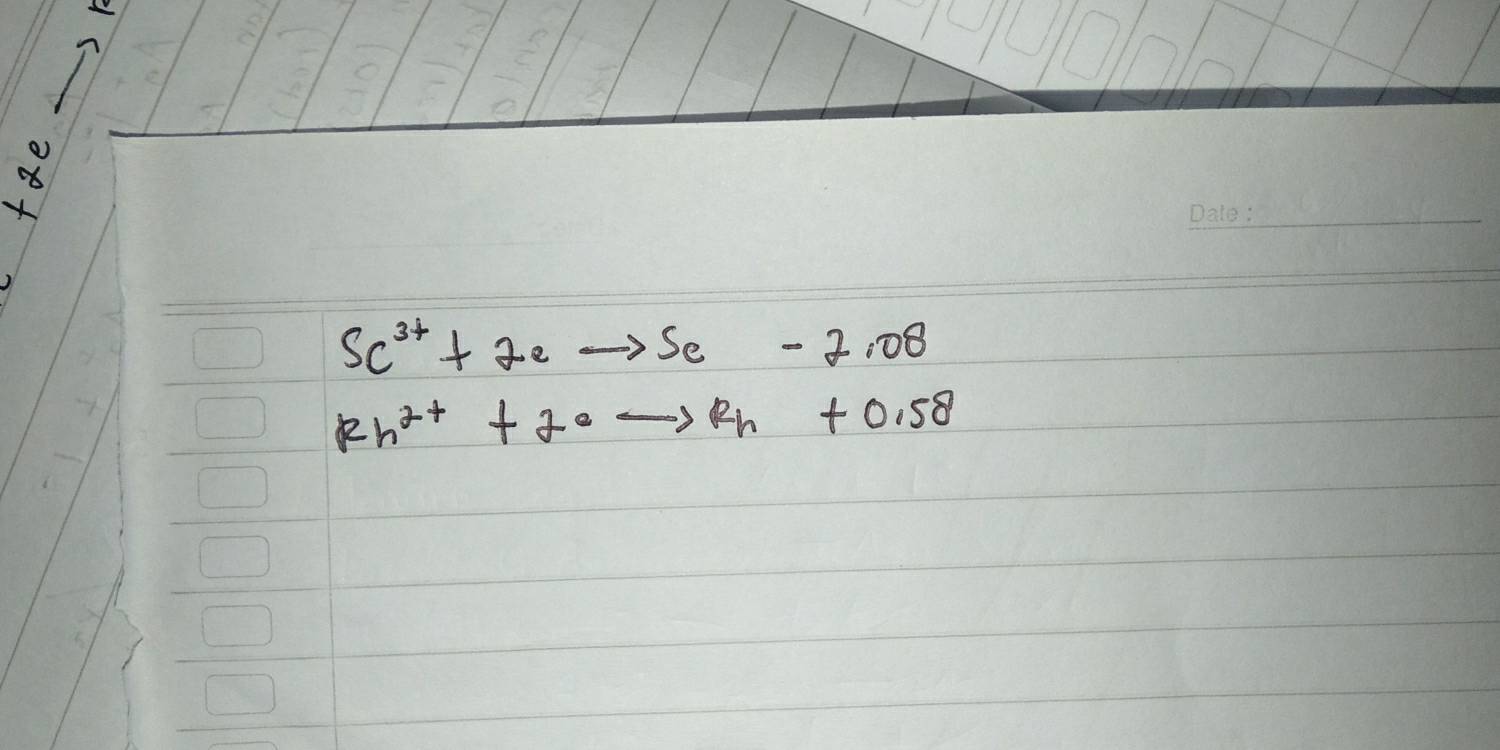 + 2e →
Date :
Sc³⁺ + 2e → Sc - 2.08
Rh²⁺ + 2e → Rh + 0.58